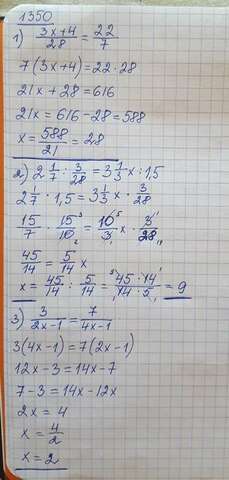 1350
1) (3x+4)/28 = 22/7
7(3x+4)=22·28
21x+28=616
21x=616-28=588
x=588/21=28
2) 2 1/7 : 3/28 = 3 1/3 x : 1,5
2 1/7 · 1,5 = 3 1/3 x · 3/28
15/7 · 15³/10₂ = 10⁵/3 x · 3/28₁₄
45/14 = 5/14 x
x = 45/14 : 5/14 = (⁹45·14¹)/(₁14·5₁) = 9
3) 3/(2x-1) = 7/(4x-1)
3(4x-1)=7(2x-1)
12x-3=14x-7
7-3=14x-12x
2x=4
x=4/2
x=2